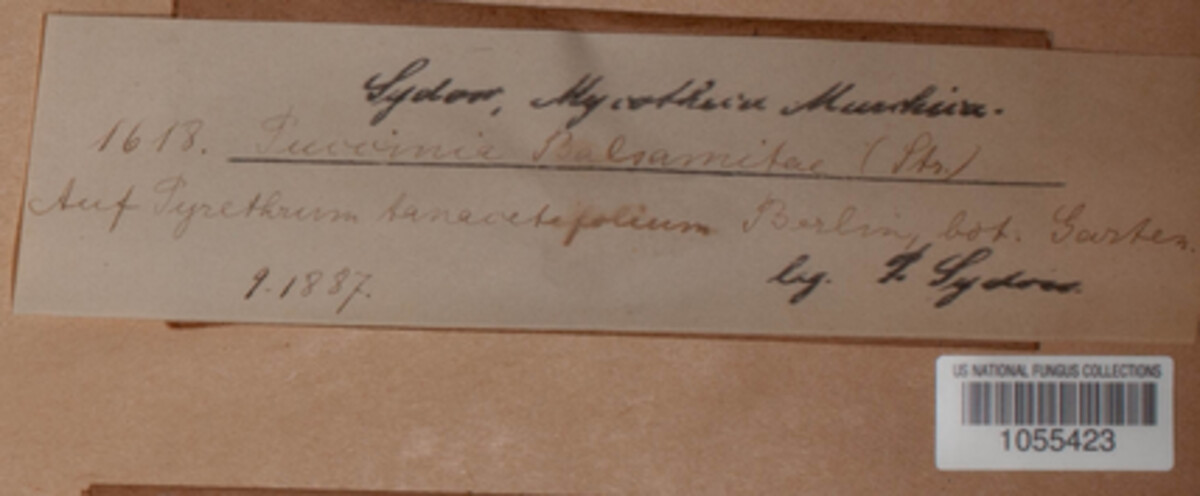 Sydow, Mycotheca Marchica.
1618. Puccinia Balsamitae (Str.)
Auf Pyrethrum tanacetifolium Berlin, bot. Garten.
9.1887.
leg. P. Sydow.
US NATIONAL FUNGUS COLLECTIONS
1055423